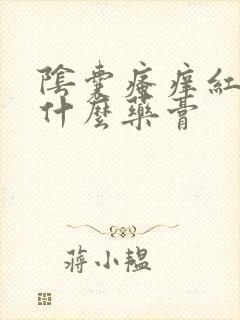 陰囊瘙癢紅
什麼藥膏
蔣小韞